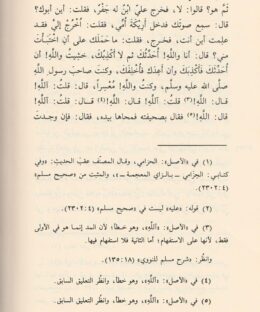 ثَمَّ هو؟ قالوا: لا، فخرج عليَّ ابنٌ له جَفْرٌ، فقلت: أين أبوك؟
قال: سمع صوتك فدخل أَرِيكَةَ أُمِّي، فقلت: اخْرُجْ إليَّ فقد
علمت أين أنت، فخرج، فقلت: ما حملك على أن اخْتَبَأْتَ
مني؟ قال: أنا واللَّهِ! أُحَدِّثُكَ ثم لا أَكْذِبُكَ، خشيتُ واللَّهِ! أن
أُحَدِّثَكَ فَأَكْذِبَكَ وأن أعدك فَأُخْلِفَكَ، وكنتَ صاحبَ رسول اللَّه
صلى الله عليه وسلم، وكنتُ واللَّهِ! مُعْسِراً، قال: قلت: آللَّهِ!
قال: اللَّهِ! قلت: آللَّهِ! قال: اللَّهِ! قلت: آللَّهِ! قال:
اللَّهِ! فقال فأتى بصحيفته فمحاها بيده، فقال: فإن وجدتَ
(١) في «الأصل»: الحزامي، وقال المصنف عقبَ الحديث: «وفي
كتابي: الحِزامي ـ بالزاي المعجمة ـ، والمثبت من «صحيح مسلم»
(٢٣٠٢:٤).
(٢) قوله: «عليه» ليست في «صحيح مسلم» (٢٣٠٢:٤).
(٣) في «الأصل»: «آللَّهِ»، وهو خطأ، لأن المد إنما هو في الأولى
فقط، لأنها على الاستفهام، أما الثانية فلا استفهام فيها.
وانظر: «شرح مسلم للنووي» (١٣٥:١٨).
(٤) في «الأصل»: «آللَّهِ»، وهو خطأ، وانظر التعليق السابق.
(٥) في «الأصل»: «آللَّهِ»، وهو خطأ، وانظر التعليق السابق.